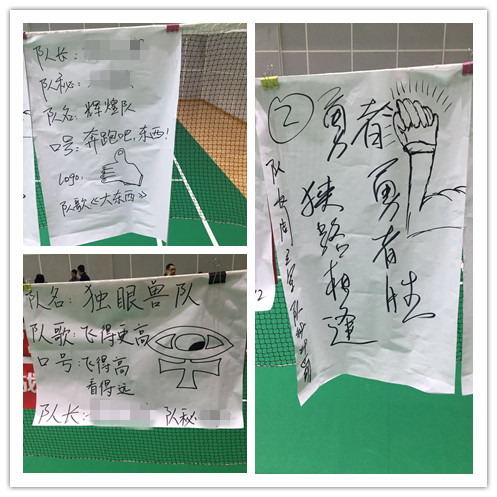 队长：
队秘：
队名：辉煌队
口号：奔跑吧，东西！
Logo：
队歌《大东西》
队名：独眼兽队
队歌：飞得更高
口号：飞得高
看得远
队长：
队秘
②
勇者
勇者胜
狭路相逢
队长
2
战